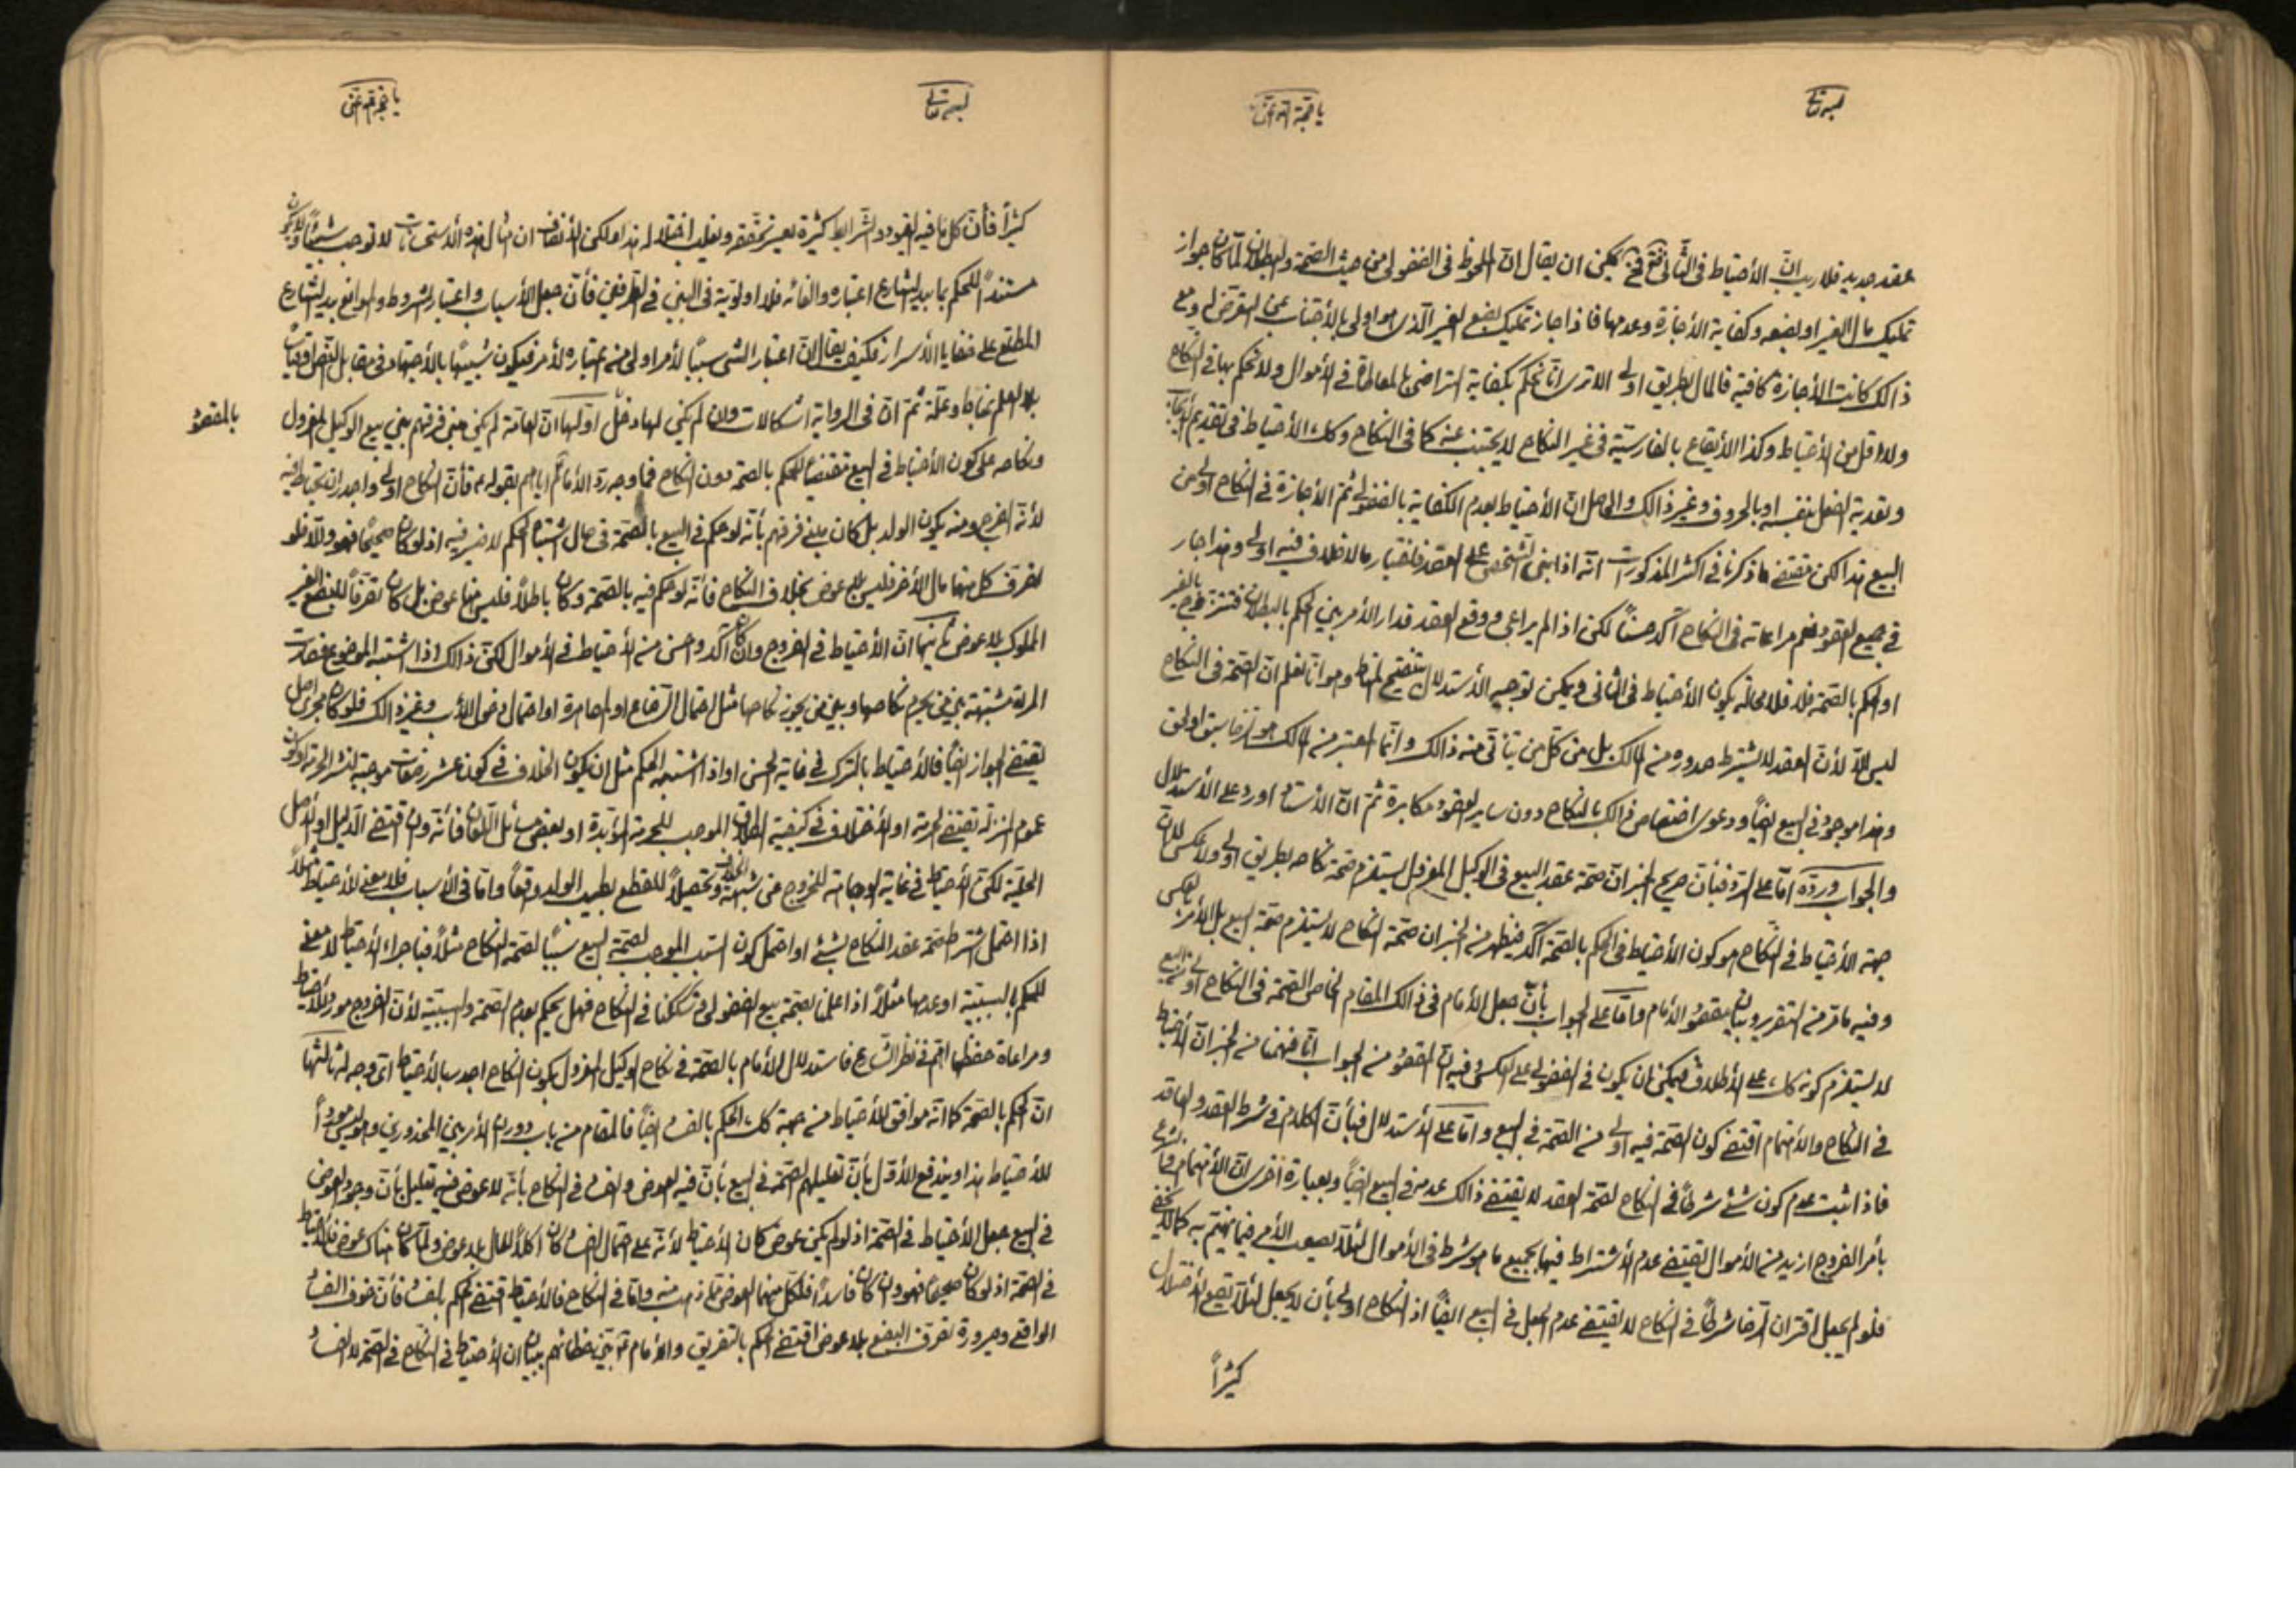 بسمه تعالى
يا حجة الله
عقد جديد فلا ريب ان الأحتياط في الثاني يمكن ان يقال ان الملحوظ في الفضولي من حيث الصحة والبطلان لما كان جواز
تمليك مال الغير او بضعه وكفاية الأجازة وعدمها فاذا جاز تمليك بضع الغير الذى هو اولى بالأجتناب عن التعرض له ومع
ذالك كانت الأجازة كافية فالمال بطريق اولى الا ترى انا نحكم بكفاية التراضى بالمعاطاة في الأموال ولا نحكم بها في النكاح
ولا اقل من الأحتياط وكذا الأيقاع بالفارسية في غير النكاح لا يجتنب عنه كما في النكاح وكك الأحتياط في تقديم
وتعدية الفعل بنفسه او بالحروف وغير ذالك والحاصل ان الأحتياط بعدم الكفاية بالفضولي ثم الأجازة في النكاح اولى من
البيع هذا لكن مقتضى ما ذكرنا في اكثر المذكورات انه اذا بنى الشخص على العقد فاختيار ما لا خلاف فيه اولى وهذا جار
في جميع العقود نعم مراعاته في النكاح آكد حسناً لكن اذا لم يراعى ووقع العقد فدار الأمر بين الحكم بالبطلان فتتزوج بالغير
او الحكم بالصحة فلا فلا محالة يكون الأحتياط في الثاني ويمكن توجيه الأستدلال بتنقيح المناط وهو انا نعلم ان الصحة في النكاح
ليس الا لأن العقد لا يشترط صدوره من المالك بل من كل من يتأتى منه ذالك وانما المعتبر من المالك هو الرضا سبق او لحق
وهذا موجود في البيع ايضاً ودعوى اختصاص ذالك بالنكاح دون ساير العقود مكابرة ثم ان الأستاد اورد على الأستدلال
والجواب ورده اما على الرد فبأن صريح الخبر ان صحة عقد البيع في الوكيل المعزول يستلزم صحة نكاحه بطريق اولى ولا عكس لأن
جهة الأحتياط في النكاح هو كون الأحتياط في الحكم بالصحة آكد فيظهر من الخبر ان صحة النكاح لا يستلزم صحة البيع بل الأمر بالعكس
وفيه ما مر من التقرير وبيان مقصود الأمام واما على الجواب بأن جعل الأمام في ذالك المقام الخاص الصحة في النكاح اولى من البيع
لا يستلزم كونه كك على الأطلاق فيمكن ان يكون في الفضولي على العكس وفيه ان المقصود من الجواب انا فهمنا من الخبر ان الأحتياط
في النكاح والأهتمام اقتضى كون الصحة فيه اولى من الصحة في البيع واما على الأستدلال فبأن الكلام في شرط العقد والعاقد
فاذا ثبت عدم كون شئ شرطاً في النكاح لصحة العقد لا يقتضى ذالك عدمه في البيع ايضاً وبعبارة اخرى ان الأهتمام
بأمر الفروج ازيد من الأموال يقتضى عدم الأشتراط فيها بجميع ما هو شرط في الأموال لئلا يصعب الأمر فيما يهتم به كما لا يخفى
فلو لم يجعل اقتران الرضا شرطاً في النكاح لا يقتضى عدم الجعل في البيع ايضاً اذ النكاح اولى بأن لا يجعل لئلا يقع الأختلال
كثيراً
بسمه تعالى
كثيراً فأن كل ما فيه القيود والشرايط كثيرة يعسر تحققه ويغلب اختلاله هذا لكن الأنصاف ان مثال هذه الأستحسانات لا توجب شيئاً ولا يكون
مستنداً للحكم بما بيد الشارع اعتباره والغائه فلا اولوية في البين في الطرفين فأن جعل الأسباب واعتبار الشروط والموانع بيد الشارع
المطلع على خفايا الأسرار فكيف يقال ان اعتبار الشئ سبباً لأمر اولى من اعتباره لأمر فيكون شبيهاً بالأجتهاد في مقابل النص
بلا العلم بمناط وعلة ثم ان في الرواية اشكالات وان لم يكن لها دخل اولها ان العامة لم يكن مبنى فرقهم بين بيع الوكيل المعزول
بالمقصود
ونكاحه على كون الأحتياط في البيع مقتضياً للحكم بالصحة دون النكاح فما وجه رد الأمام اياهم بقوله فأن النكاح اولى واجدر ان يحتاط فيه
لأنه الفرج ومنه يكون الولد بل كان مبنى فرقهم بأنه لو حكم في البيع بالصحة في حال اشتباه الحكم لا ضير فيه اذ لو كان صحيحاً فهو والا فلو
تصرف كل منهما مال الأخر فليس بلا عوض بخلاف النكاح فأنه لو حكم فيه بالصحة وكان باطلاً فليس هنا عوض بل كان تصرفاً للبضع الغير
المملوك بلا عوض ثانيها ان الأحتياط في الفروج وان كان آكد واحسن من الأحتياط في الأموال لكن ذالك اذا اشتبه الموضوع
المرئة مشتبهة بين من يحرم نكاحها وبين من يجوز نكاحها مثل احتمال الرضاع او المصاهرة او احتمال دخول الأب وغير ذالك فلو كان مجرى اصل
يقتضى الجواز ايضاً فالأحتياط بالترك في غاية الحسن او اذا اشتبه الحكم مثل ان يكون الخلاف في كون عشر رضعات موجبة لنشر الحرمة او كون
عموم المنزلة يقتضى الحرمة او الأختلاف في كيفية الطلاق الموجب للحرمة الأبدية او بعض مسائل اللعان فأنه وان اقتضى الدليل او الأصل
الحلية لكن الأحتياط في غاية الوجاهة للخروج عن شبهة الخلاف وتحصيلاً للقطع بطيب الولد وقعاً واما في الأسباب فلا معنى للأحتياط مثلاً
اذا احتمل اشتراط صحة عقد النكاح بشئ او احتمل كون السبب الموجب لصحة البيع سبباً لصحة النكاح مثلاً فبأجراء الأحتياط لا معنى
للحكم بالسببية او عدمها مثلاً اذا علمنا بصحة بيع الفضولي وشككنا في النكاح فهل يحكم بعدم الصحة والسببية لأن الفروج مورد الأحتياط
ومراعاة حفظها اهم في نظر الشارع فاستدلال الأمام بالصحة في نكاح الوكيل المعزول بكون النكاح اجدر بالأحتياط اى وجه له ثالثها
ان الحكم بالصحة كما انه موافق للأحتياط من جهة كك الحكم بالفساد ايضاً فالمقام من باب دوران الأمر بين المحذورين وهو ليس مورداً
للأحتياط هذا ويندفع الأول بأن تعليلهم الصحة في البيع بأن فيه العوض والفساد في النكاح بأنه لا عوض فيه تعليل بأن وجود العوض
في البيع جعل الأحتياط في الصحة اذ لو لم يكن عوض كان الأحتياط لأنه على احتمال الفساد كان اكلاً للمال بلا عوض ولما كان هناك عوض فالأحتياط
في الصحة اذ لو كان صحيحاً فهو وان كان فاسداً فلكل منهما العوض واما في النكاح فالأحتياط اقتضى الحكم بالفساد فأن خوف الفساد
الواقعى وصيرورة تصرف البضع بلا عوض اقتضى الحكم بالتفريق والأمام بين خطائهم ببيان ان الأحتياط في النكاح في الصحة لا الفساد